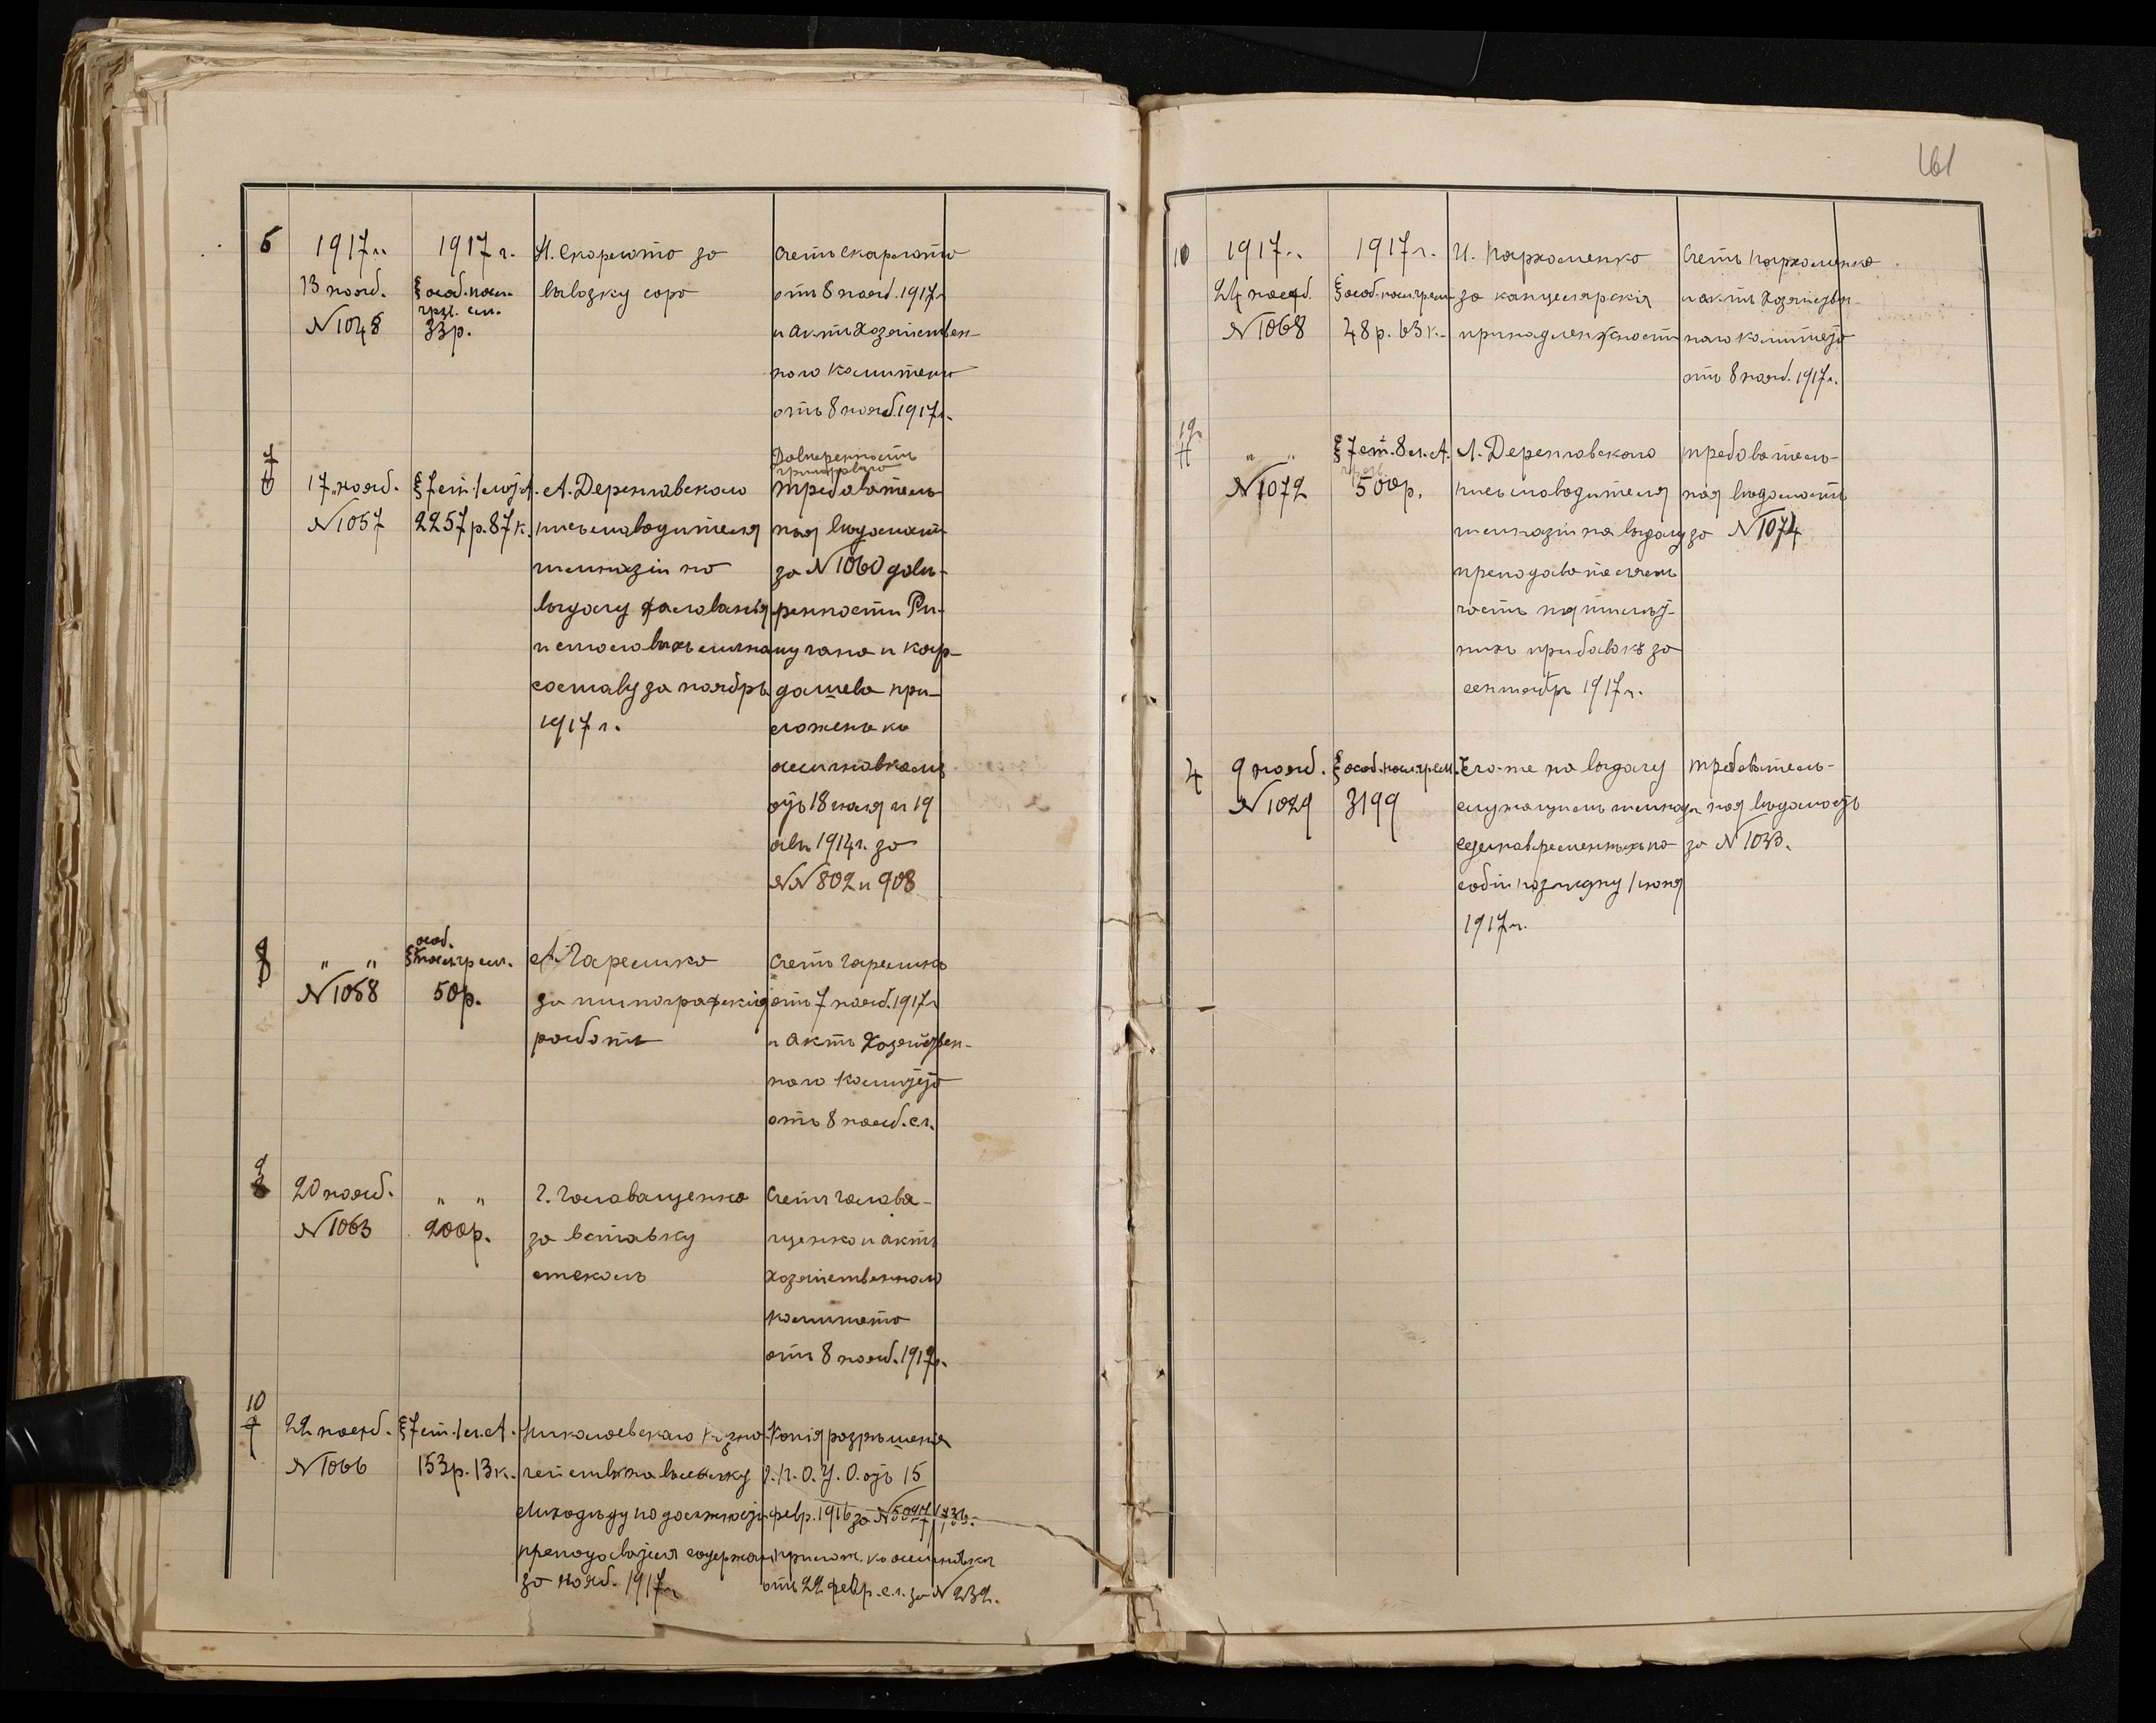 161
5
1917 г.
13 нояб.
№ 1048
1917 г.
§ особ. пом.
33 р.
Н. Скарлато за
вывозку сора
Счетъ Скарлато
отъ 8 нояб. 1917 г.
и актъ Хозяйствен-
наго комитета
отъ 8 нояб. 1917 г.
7
6
17 нояб.
№ 1057
§ 7 ст. 1
2257 р. 87 к.
А. Деренговскаго
письмоводителя
гимназіи на
выдачу жалованья
и столовыхъ личному
составу за ноябрь
1917 г.
Довѣренность
Требователь-
ная вѣдомость
за № 1060 довѣ-
ренности
и Кар-
дашева при-
ложены къ
ассигновкамъ
отъ 18 мая и 19
авг. 1914 г. за
№№ 802 и 908
8
„ „
№ 1058
особ.
50 р.
А. Гарешко
за типографскія
работы
Счетъ Гарешко
отъ 7 нояб. 1917 г.
и актъ Хозяйствен-
наго комитета
отъ 8 нояб. с.г.
9
8
20 нояб.
№ 1063
„ „
200 р.
Г. Головащенко
за вставку
стеколъ
Счетъ Голова-
щенко и актъ
Хозяйственнаго
комитета
отъ 8 нояб. 1917 г.
10
9
22 нояб.
№ 1066
§ 7 ст. 1 л. А.
153 р. 13 к.
Николаевскаго Казна-
чейства на высылку
по должности
преподавателя содержан.
за нояб. 1917 г.
Копія разрѣшенія
О. У. О. отъ 15
февр. 1916 за №
прилож. къ ассигновкѣ
отъ 22 февр. с.г. за № 232.
10
1917 г.
24 нояб.
№ 1068
1917 г.
§ особ. пом.
48 р. 63 к.
И. Пархоменко
за канцелярскія
принадлежности
Счетъ Пархоменко
и актъ Хозяйствен-
наго комитета
отъ 8 нояб. 1917 г.
12
11
„ „
№ 1072
§ 7 ст. 8 л. А.
500 р.
А. Деренговскаго
письмоводителя
гимназіи на выдачу
преподавателямъ
части пятилѣт-
нихъ прибавокъ за
сентябрь 1917 г.
Требователь-
ная вѣдомость
за № 1074
4
9 нояб.
№ 1029
§ особ. пом.
3199
Его-же на выдачу
служащимъ гимназіи
единовременныхъ по-
собій 1 іюня
1917 г.
Требователь-
ная вѣдомость
за № 1033.